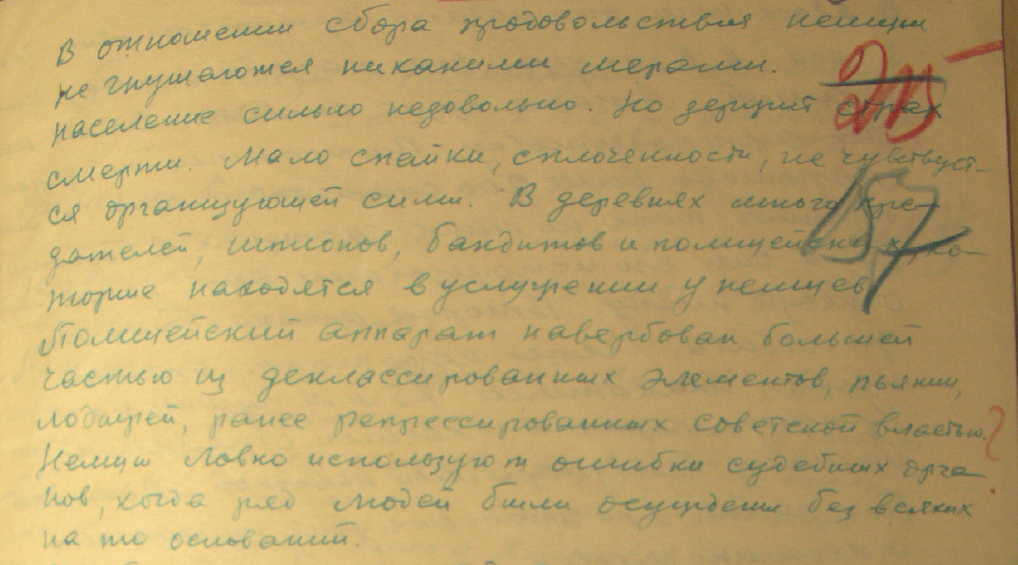 В отношении сбора продовольствия немцы
не гнушаются никакими мерами.
население сильно недовольно. Но держит страх
смерти. Мало спайки, сплоченности, не чувствует-
ся организующей силы. В деревнях много пре-
дателей, шпионов, бандитов и полицейских, ко-
торые находятся в услужении у немцев.
Полицейский аппарат навербован большей
частью из деклассированных элементов, пьяниц,
лодырей, ранее репрессированных советской властью.
Немцы ловко используют ошибки судебных орга-
нов, когда ряд людей были осуждены без всяких
на то оснований.
157